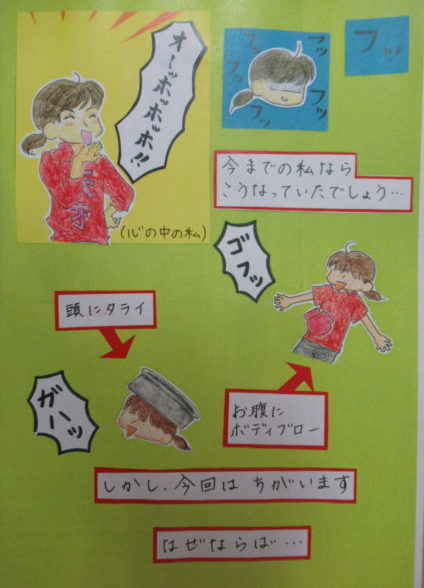 オーッホッホッホ!!
天才
(心の中の私)
フッ
フッ
フッ
フッ
フッ
フッ
今までの私なら
こうなっていたでしょう…
ゴフッ
頭にタライ
ガハッ
お腹に
ボディブロー
しかし、今回は ちがいます
なぜならば…